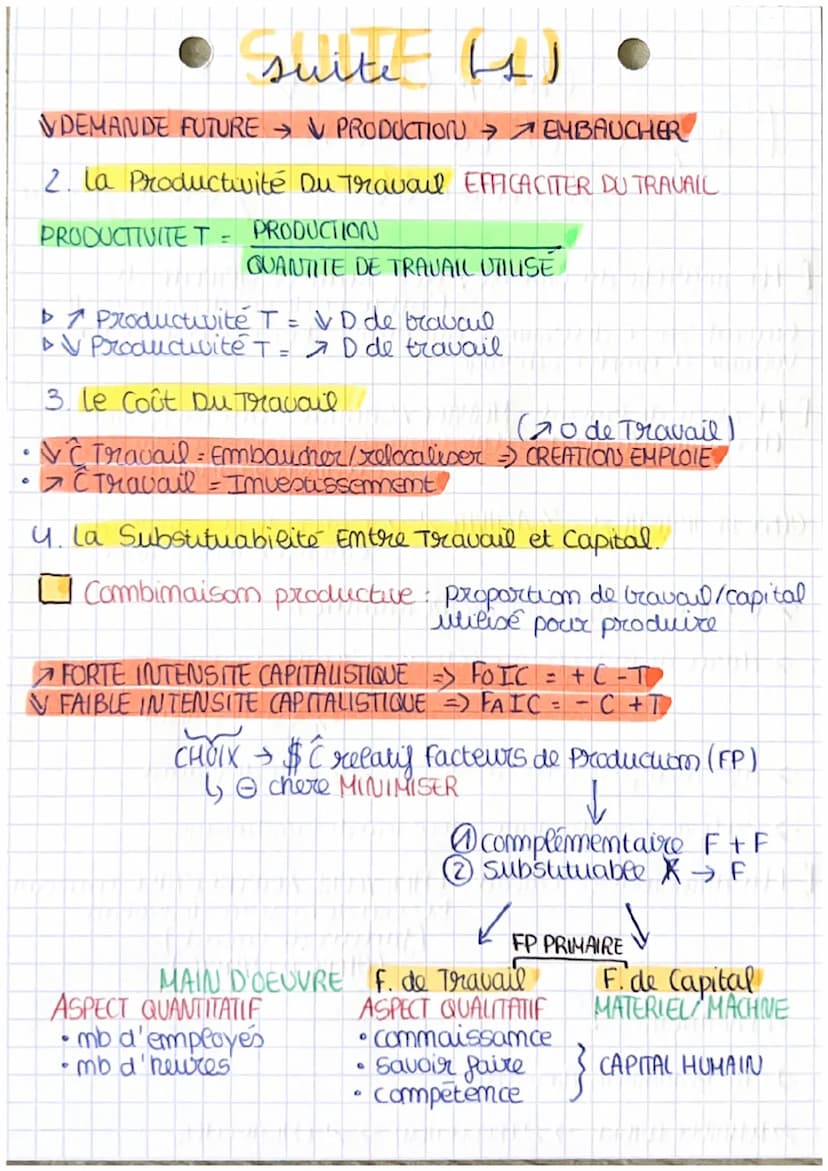 SUITE (1)
suite (1)
↘ DEMANDE FUTURE → ↘ PRODUCTION → ↗ EMBAUCHER
2. La Productivité Du Travail EFFICACITER DU TRAVAIL
PRODUCTIVITE T = PRODUCTION
QUANTITE DE TRAVAIL UTILISÉ
▷ ↗ Productivité T = ↘ D de travail
▷ ↘ Productivité T = ↗ D de travail
3. Le Coût Du Travail
(↗ O de Travail)
• ↘ Ĉ Travail = Embaucher/relocaliser => CREATION EMPLOIE
• ↗ Ĉ Travail = Investissement
4. La Substituabilité Entre Travail et Capital.
Combinaison productive : proportion de travail/capital
utilisé pour produire
↗ FORTE INTENSITE CAPITALISTIQUE => FOIC = + C - T
↘ FAIBLE INTENSITE CAPITALISTIQUE => FAIC = - C + T
CHOIX → $ Ĉ relatif Facteurs de Production (FP)
↳ ⊖ chere MINIMISER
① complémentaire F + F
② Substituable F → F
FP PRIMAIRE
MAIN D'OEUVRE F. de Travail F. de Capital
ASPECT QUANTITATIF ASPECT QUALITATIF MATERIEL/MACHINE
• nb d'employés • connaissance
• nb d'heures • savoir faire } CAPITAL HUMAIN
• compétence